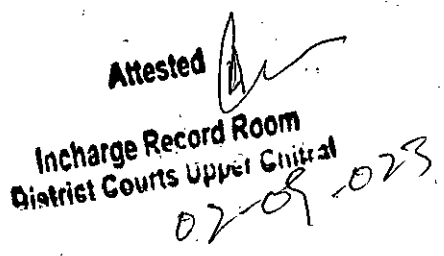 Attested
Incharge Record Room
District Courts Upper Chitral
02-09-023